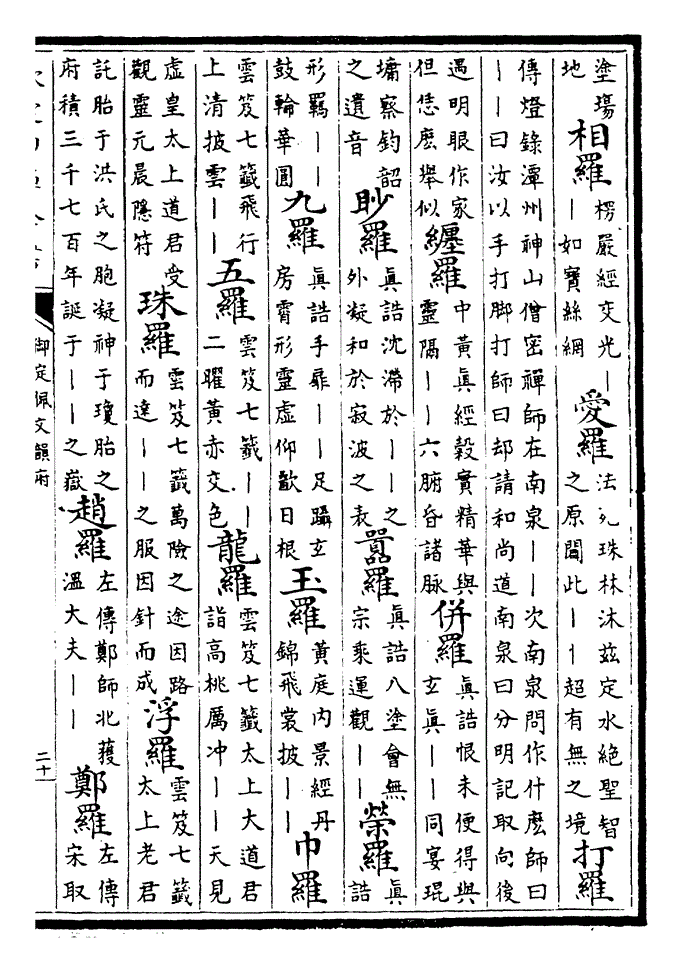 塗瑒地 相羅 楞嚴經交光丨丨如寶絲網 愛羅 法苑珠林沐兹定水絶聖智之原聞此丨丨超有無之境 打羅
傳燈錄潭州神山僧密禪師在南泉丨丨次南泉問作什麽師曰丨丨曰汝以手打脚打師曰却請和尚道南泉曰分明記取向後
遇明眼作家但恁麽舉似 纏羅 中黄真經穀實精華與靈隔丨丨六腑昏諸脉 併羅 真誥恨未便得與玄真丨丨同宴琨
墉察鈞韶之遺音 眇羅 真誥沈滯於丨丨之外凝和於寂波之表 嚣羅 真誥八塗會無宗乘運觀丨丨 榮羅 真誥
形羈丨丨鼓輪華圓 九羅 真誥手扉丨丨足躡玄房霄形靈虛仰歠日根 玉羅 黄庭内景經丹錦飛裳披丨丨 巾羅
雲笈七籤飛行上清披雲丨丨 五羅 雲笈七籤丨丨二曜黄赤交色 龍羅 雲笈七籤太上大道君詣高桃厲冲丨丨天見
虛皇太上道君受觀靈元晨隱符 珠羅 雲笈七籤萬險之途因路而達丨丨之服因針而成 浮羅 雲笈七籤太上老君
託胎于洪氏之胞凝神于瓊胎之府積三千七百年誕于丨丨之嶽 趙羅 左傳鄭師北獲温大夫丨丨 鄭羅 左傳宋取
御定佩文韻府 二十